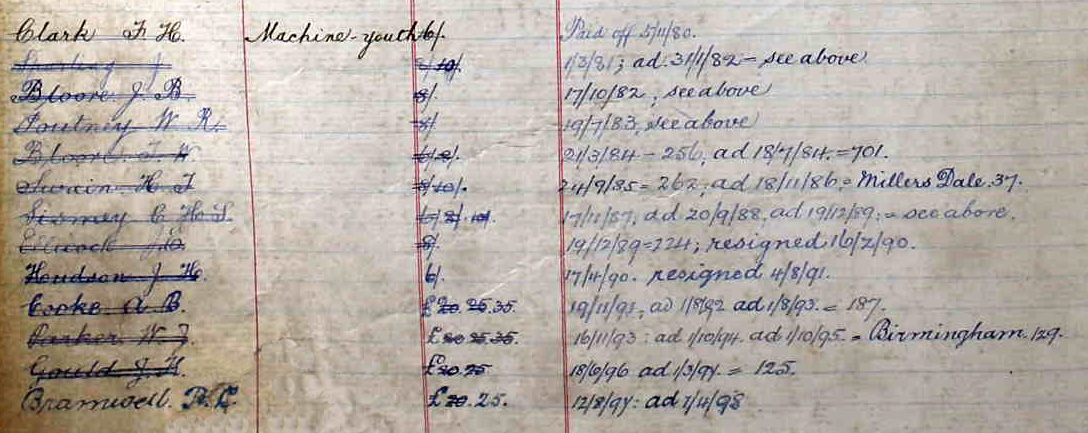 Clark F H. Machine-youth 6/. Paid off 5/11/80.
J 8/ 10/. 1/3/81; ad. 31/1/82 = see above
Bloore J B. 8/. 17/10/82; see above
Poutney W R. 8/. 19/7/83, see above
Bloore F W. 6/ 8/. 21/3/84 - 256, ad 18/7/84. = 701.
Swain H J 8/ 10/. 24/9/85 = 262; ad 18/11/86 = Millers Dale. 37.
Sismey C H S. 6/ 8/. 10/. 17/11/87, ad 20/9/88, ad 19/12/89; = see above.
Ellcock J 8/. 19/12/89 = 224; resigned 16/2/90.
Hewdson J H. 6/. 17/4/90. resigned 4/8/91.
Cooke A B. £20. 25. 35. 19/11/91, ad 1/8/92 ad 1/8/93. = 187.
Parker W J. £20 25. 35. 16/11/93: ad 1/10/94. ad 1/10/95. = Birmingham. 129.
Gould J H. £20. 25 18/6/96 ad 1/3/97. = 125.
Bramwell. R. L £20. 25. 12/8/97: ad 1/4/98